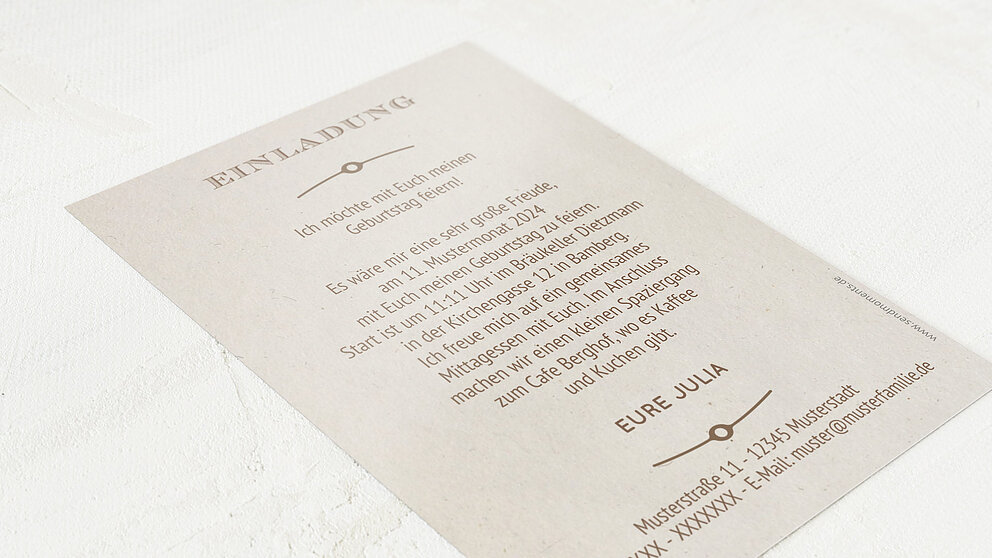 EINLADUNG
Ich möchte mit Euch meinen
Geburtstag feiern!
Es wäre mir eine sehr große Freude,
am 11. Mustermonat 2024
mit Euch meinen Geburtstag zu feiern.
Start ist um 11:11 Uhr im Bräukeller Dietzmann
in der Kirchengasse 12 in Bamberg.
Ich freue mich auf ein gemeinsames
Mittagessen mit Euch. Im Anschluss
machen wir einen kleinen Spaziergang
zum Cafe Berghof, wo es Kaffee
und Kuchen gibt.
EURE JULIA
Musterstraße 11 - 12345 Musterstadt
XX - XXXXXXX - E-Mail: muster@musterfamilie.de
www.sendmoments.de